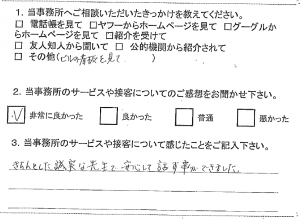 1. 当事務所へご相談いただいたきっかけを教えてください。
□ 電話帳を見て □ ヤフーからホームページを見て □ グーグルか
らホームページを見て □ 紹介を受けて
□ 友人知人から聞いて □ 公的機関から紹介されて
□ その他(ビルの看板を見て )
2. 当事務所のサービスや接客についてのご感想をお聞かせ下さい。
☑ 非常に良かった □ 良かった □ 普通 □ 悪かった
3. 当事務所のサービスや接客について感じたことをご記入下さい。
きちんとした誠実な先生で安心して話す事ができました。